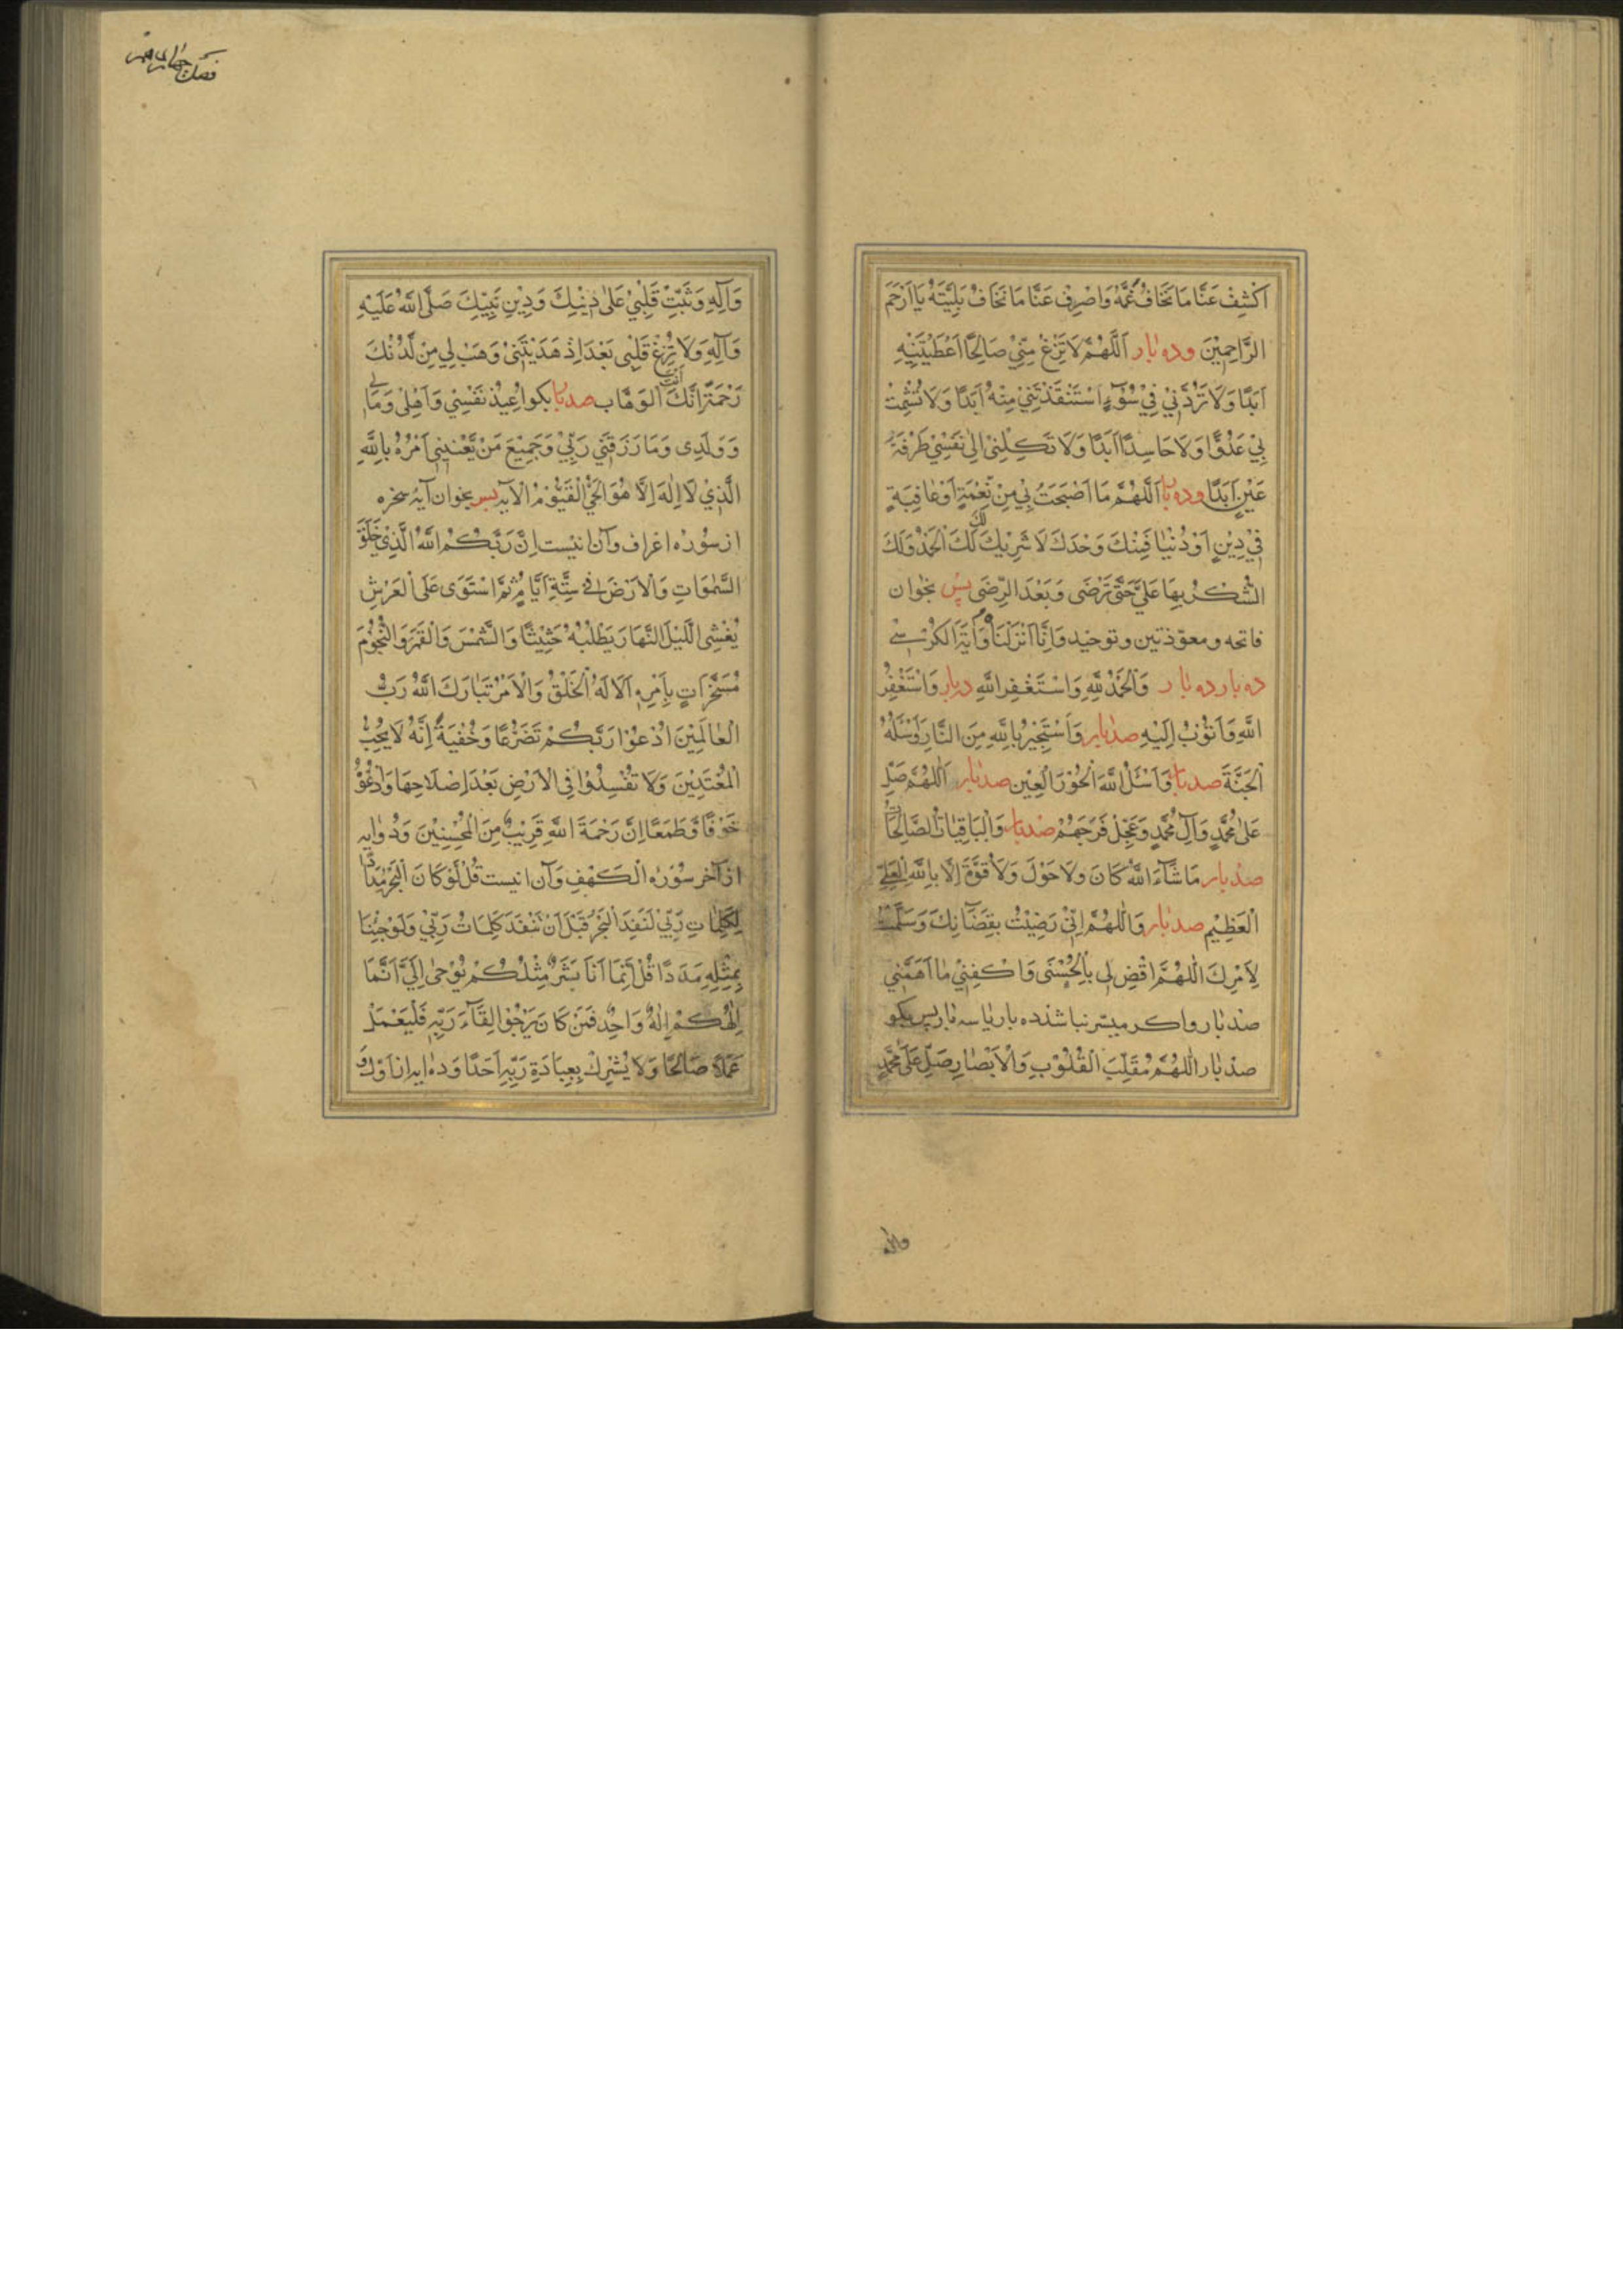 اَكْشِفْ عَنَّا مَا نَخَافُ غَمَّهُ وَاصْرِفْ عَنَّا مَا نَخَافُ بَلِيَّتَهُ يَا اَرْحَمَ
الرَّاحِمِيْنَ وده بار اَللّٰهُمَّ لَا تَنْزِعْ مِنِّيْ صَالِحًا اَعْطَيْتَنِيْهِ
اَبَدًا وَلَا تَرُدَّنِيْ فِيْ سُوْءٍ اِسْتَنْقَذْتَنِيْ مِنْهُ اَبَدًا وَلَا تُشْمِتْ
بِيْ عَدُوًّا وَلَا حَاسِدًا اَبَدًا وَلَا تَكِلْنِيْ اِلٰى نَفْسِيْ طَرْفَةَ
عَيْنٍ اَبَدًا وده بار اَللّٰهُمَّ مَا اَصْبَحَتْ بِيْ مِنْ نِعْمَةٍ اَوْ عَافِيَةٍ
فِيْ دِيْنٍ اَوْ دُنْيَا فَمِنْكَ وَحْدَكَ لَا شَرِيْكَ لَكَ لَكَ الْحَمْدُ وَلَكَ
الشُّكْرُ بِهَا عَلَيَّ حَتّٰى تَرْضَى وَبَعْدَ الرِّضَى پس بخوان
فاتحه ومعوّذتين وتوحيد وَاِنَّا اَنْزَلْنَاهُ وَآيَةَ الْكُرْسِي
ده بار ده بار وَالْحَمْدُ لِلّٰهِ وَاسْتَغْفِرُ اللّٰهِ ده بار وَاَسْتَغْفِرُ
اللّٰهَ وَاَتُوْبُ اِلَيْهِ صد بار وَاَسْتَجِيْرُ بِاللّٰهِ مِنَ النَّارِ وَاَسْئَلُهُ
الْجَنَّةَ صد بار وَاَسْئَلُ اللّٰهَ الْحُوْرَ الْعِيْنَ صد بار اَللّٰهُمَّ صَلِّ
عَلٰى مُحَمَّدٍ وَآلِ مُحَمَّدٍ وَعَجِّلْ فَرَجَهُمْ صد بار وَالْبَاقِيَاتُ الصَّالِحَاتُ
صد بار مَا شَاءَ اللّٰهُ كَانَ وَلَا حَوْلَ وَلَا قُوَّةَ اِلَّا بِاللّٰهِ الْعَلِيِّ
الْعَظِيْمِ صد بار وَاللّٰهُمَّ اِنِّيْ رَضِيْتُ بِقَضَائِكَ وَسَلَّمْتُ
لِاَمْرِكَ اَللّٰهُمَّ اقْضِ لِي بِالْحُسْنٰى وَاكْفِنِيْ مَا اَهَمَّنِيْ
صد بار واكر ميسّر نباشد ده بار يا سه بار پس بكو
صد بار اللّٰهُمَّ مُقَلِّبَ الْقُلُوْبِ وَالْاَبْصَارِ صَلِّ عَلٰى مُحَمَّدٍ
وَآلِهِ وَثَبِّتْ قَلْبِيْ عَلٰى دِيْنِكَ وَدِيْنِ نَبِيِّكَ صَلَّى اللّٰهُ عَلَيْهِ
وَآلِهِ وَلَا تُزِغْ قَلْبِي بَعْدَ اِذْ هَدَيْتَنِيْ وَهَبْ لِي مِنْ لَّدُنْكَ
رَحْمَةً اِنَّكَ اَنْتَ الْوَهَّاب صد بار بكو اُعِيْذُ نَفْسِيْ وَاَهْلِيْ وَمَالِي
وَوَلَدِى وَمَا رَزَقَنِي رَبِّيْ وَجَمِيْعَ مَنْ يَّعْنِيْنِي اَمْرُهُ بِاللّٰهِ
الَّذِيْ لَا اِلٰهَ اِلَّا هُوَ الْحَيُّ الْقَيُّوْمُ الْآيه پس بخوان آيهٔ سخره
از سُوْرهٔ اعراف وآن اينست اِنَّ رَبَّكُمُ اللّٰهُ الَّذِيْ خَلَقَ
السَّمٰوَاتِ وَالْاَرْضَ فِي سِتَّةِ اَيَّامٍ ثُمَّ اسْتَوَى عَلَى الْعَرْشِ
يُغْشِى اللَّيْلَ النَّهَارَ يَطْلُبُهُ حَثِيْثًا وَالشَّمْسَ وَالْقَمَرَ وَالنُّجُوْمَ
مُسَخَّرَاتٍ بِاَمْرِهِ اَلَا لَهُ الْخَلْقُ وَالْاَمْرُ تَبَارَكَ اللّٰهُ رَبُّ
الْعَالَمِيْنَ اُدْعُوْا رَبَّكُمْ تَضَرُّعًا وَخُفْيَةً اِنَّهُ لَا يُحِبُّ
الْمُعْتَدِيْنَ وَلَا تُفْسِدُوْا فِي الْاَرْضِ بَعْدَ اِصْلَاحِهَا وَادْعُوْهُ
خَوْفًا وَّطَمَعًا اِنَّ رَحْمَةَ اللّٰهِ قَرِيْبٌ مِنَ الْمُحْسِنِيْنَ وَدُو آيه
از آخر سُوْرهٔ الْكَهْفِ وَآن اينست قُلْ لَّوْ كَانَ الْبَحْرُ مِدَادًا
لِكَلِمَاتِ رَبِّيْ لَنَفِدَ الْبَحْرُ قَبْلَ اَنْ تَنْفَدَ كَلِمَاتُ رَبِّيْ وَلَوْ جِئْنَا
بِمِثْلِهِ مَدَدًا قُلْ اِنَّمَا اَنَا بَشَرٌ مِثْلُكُمْ يُوْحٰى اِلَيَّ اَنَّمَا
اِلٰهُكُمْ اِلٰهٌ وَاحِدٌ فَمَنْ كَانَ يَرْجُوْا لِقَاءَ رَبِّهِ فَلْيَعْمَلْ
عَمَلًا صَالِحًا وَلَا يُشْرِكْ بِعِبَادَةِ رَبِّهِ اَحَدًا وَده آيه از اوّل